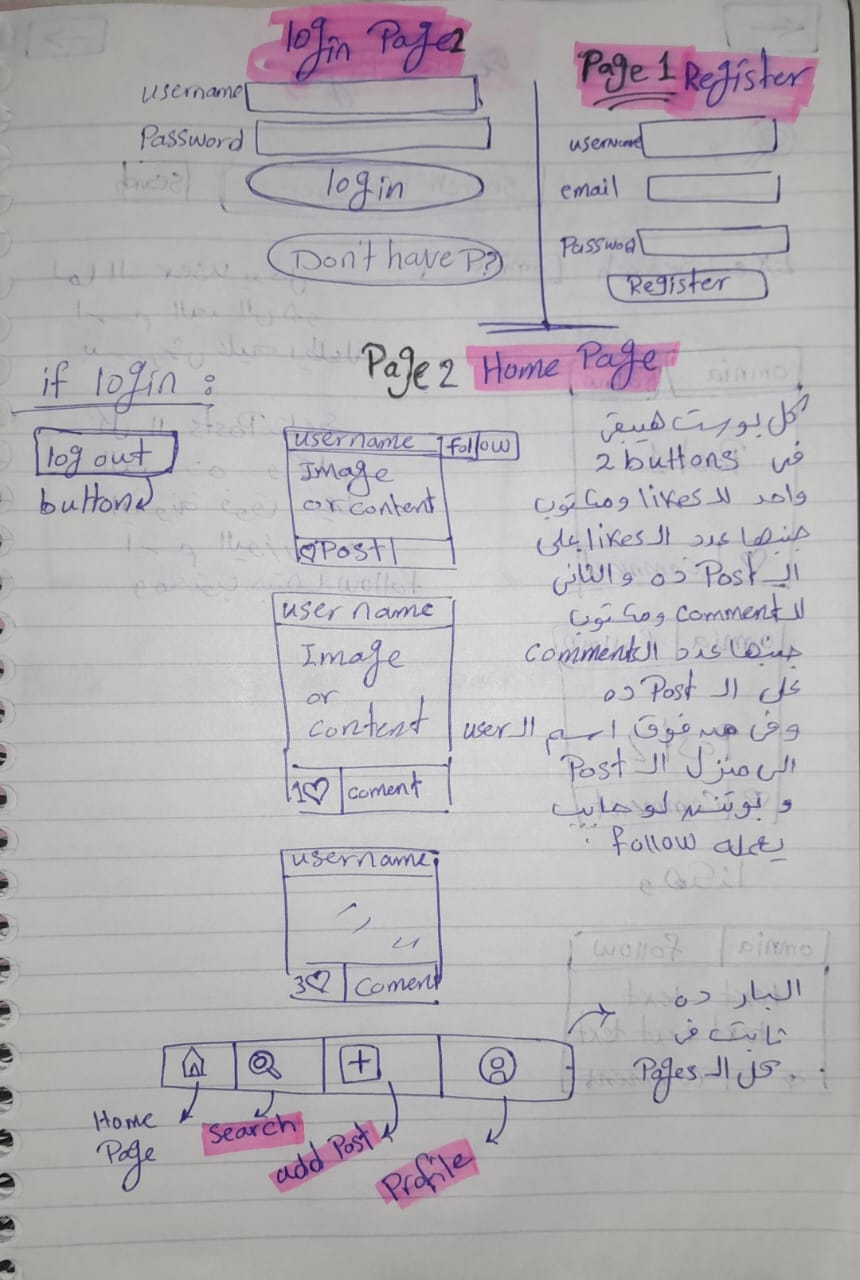 login Page2
username
Password
login
Don't have P?
Page 1 Register
username
email
Passwod
Register
Page 2 Home Page
if login :
log out
button
username follow
Image
or content
♡Post
user name
Image
or
content
1♡ coment
username
3♡ coment
كل بوست هيبقى
فى 2 buttons
واحد للـ likes ومكتوب
جنبها عدد الـ likes على
الـ Post ده والثانى
للـ comment ومكتوب
جنبها عدد الـ comments
على الـ Post ده
وفى من فوق اسم الـ user
الى منزل الـ Post
و بوتن لو حابب
يعمله follow
البار ده
ثابت فى
كل الـ Pages.
Home
Page
Search
add Post
Profile